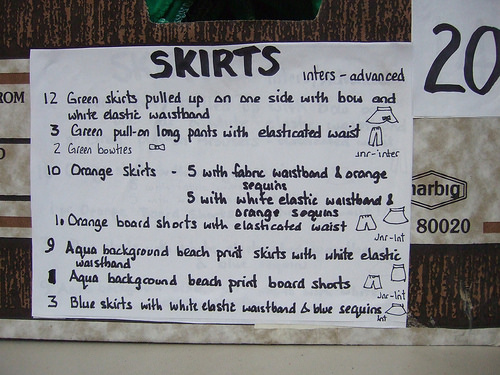 SKIRTS
inters - advanced
20
12 Green skirts pulled up on one side with bow and
white elastic waistband
3 Green pull-on long pants with elasticated waist
2 Green bowties
jnr-inter
10 Orange skirts - 5 with fabric waistband & orange
sequins
5 with white elastic waistband &
orange sequins
1. Orange board shorts with elasticated waist
Jnr-Int
9 Aqua background beach print skirts with white elastic
waistband
Aqua background beach print board shorts
Jnr-Int
3 Blue skirts with white elastic waistband & blue sequins
Int
ROM
arbig
80020